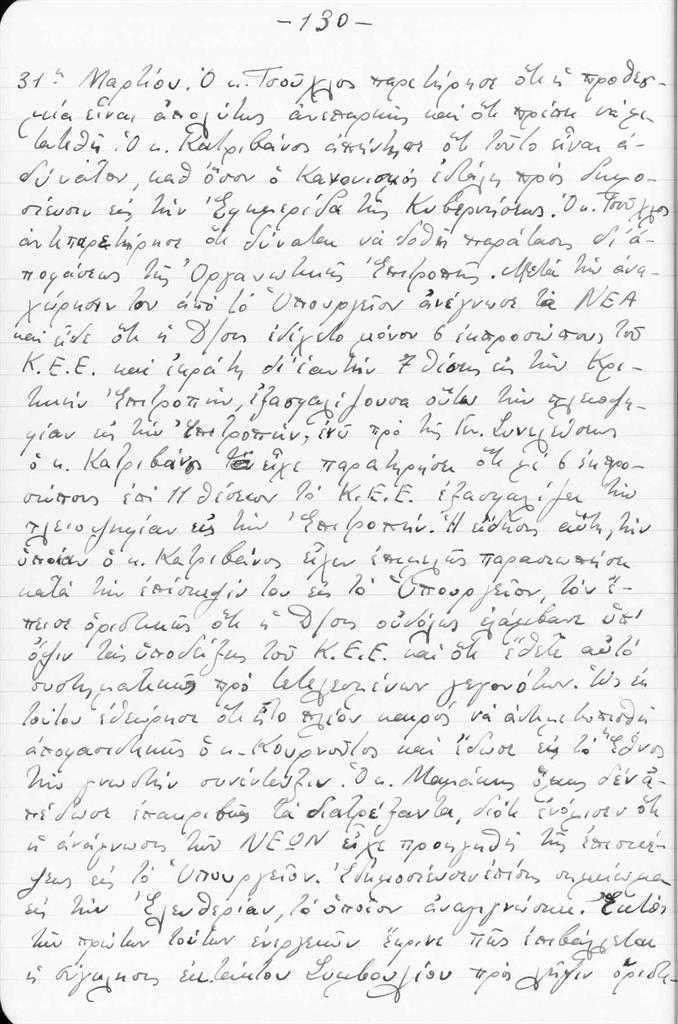 -130-
31ην Μαρτίου. Ὁ κ. Τσοῦχλος παρετήρησε ὅτι ἡ προθεσ-
μία εἶναι ἀπολύτως ἀνεπαρκής καί ὅτι πρέπει νά με-
τατεθῇ. Ὁ κ. Κατριβάνος ἀπήντησε ὅτι τοῦτο εἶναι ἀ-
δύνατον, καθ' ὅσον ὁ Κανονισμός ἐστάλη πρός δημο-
σίευσιν εἰς τήν Ἐφημερίδα τῆς Κυβερνήσεως. Ὁ κ. Τσοῦχλος
ἀντιπαρετήρησε ὅτι δύναται νά δοθῇ παράτασις δι' ἀ-
ποφάσεως τῆς Ὀργανωτικῆς Ἐπιτροπῆς. Μετά τήν ἀνα-
χώρησίν του ἀπό τό Ὑπουργεῖον ἀνέγνωσε τά ΝΕΑ
καί εἶδε ὅτι ἡ Δ/σις ἐδέχετο μόνον 6 ἐκπροσώπους τοῦ
Κ.Ε.Ε. καί ἐκράτη δι' ἑαυτήν 7 θέσεις εἰς τήν Κρι-
τικήν Ἐπιτροπήν, ἐξασφαλίζουσα οὕτω τήν πλειοψη-
φίαν εἰς τήν Ἐπιτροπήν, ἐνῶ πρό τῆς Γεν. Συνελεύσεως
ὁ κ. Κατριβάνος εἶχε παρατηρήσει ὅτι μέ 6 ἐκπρο-
σώπους ἐπί 11 θέσεων τό Κ.Ε.Ε. ἐξασφαλίζει τήν
πλειοψηφίαν εἰς τήν Ἐπιτροπήν. Ἡ εἴδησις αὕτη, τήν
ὁποίαν ὁ κ. Κατριβάνος εἶχεν ἐπιμελῶς παρασιωπήσει
κατά τήν ἐπίσκεψίν του εἰς τό Ὑπουργεῖον, τόν ἔ-
πεισε ὁριστικῶς ὅτι ἡ Δ/σις οὐδόλως ἐλάμβανε ὑπ'
ὄψιν τάς ὑποδείξεις τοῦ Κ.Ε.Ε. καί ὅτι ἔθετε αὐτό
συστηματικῶς πρό τετελεσμένων γεγονότων. Ὡς ἐκ
τούτου ἐθεώρησε ὅτι ἦτο πλέον καιρός νά ἀντιμετωπισθῇ
ἀποφασιστικῶς ὁ κ. Κουρνοῦτος καί ἔδωσε εἰς τό Ἔθνος
τήν γνωστήν συνέντευξιν. Ὁ κ. Μαμάκης ὅμως δέν ἀ-
πέδωσε ἐπακριβῶς τά διατρέξαντα, διότι ἐνόμισεν ὅτι
ἡ ἀνάγνωσις τῶν ΝΕΩΝ εἶχε προηγηθῆ τῆς ἐπισκέ-
ψεως εἰς τό Ὑπουργεῖον. Ἐδημοσίευσεν ἐπίσης σημείωμα
εἰς τήν Ἐλευθερίαν, τό ὁποῖον ἀναγιγνώσκει. Ἐκτός
τῶν πρώτων τούτων ἐνεργειῶν ἔκρινε πῶς ἐπιβάλλεται
ἡ σύγκλησις ἐκτάκτου Συμβουλίου πρός λῆψιν ὁριστι-